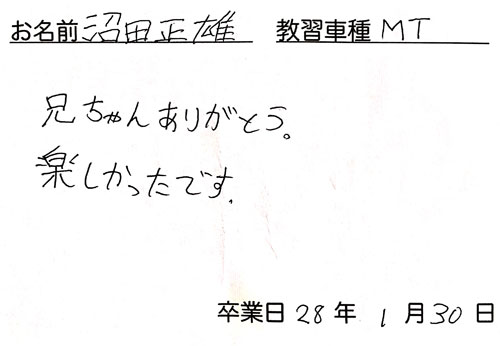 お名前 沼田正雄 教習車種 MT
兄ちゃんありがとう。
楽しかったです.
卒業日 28 年 1 月 30 日